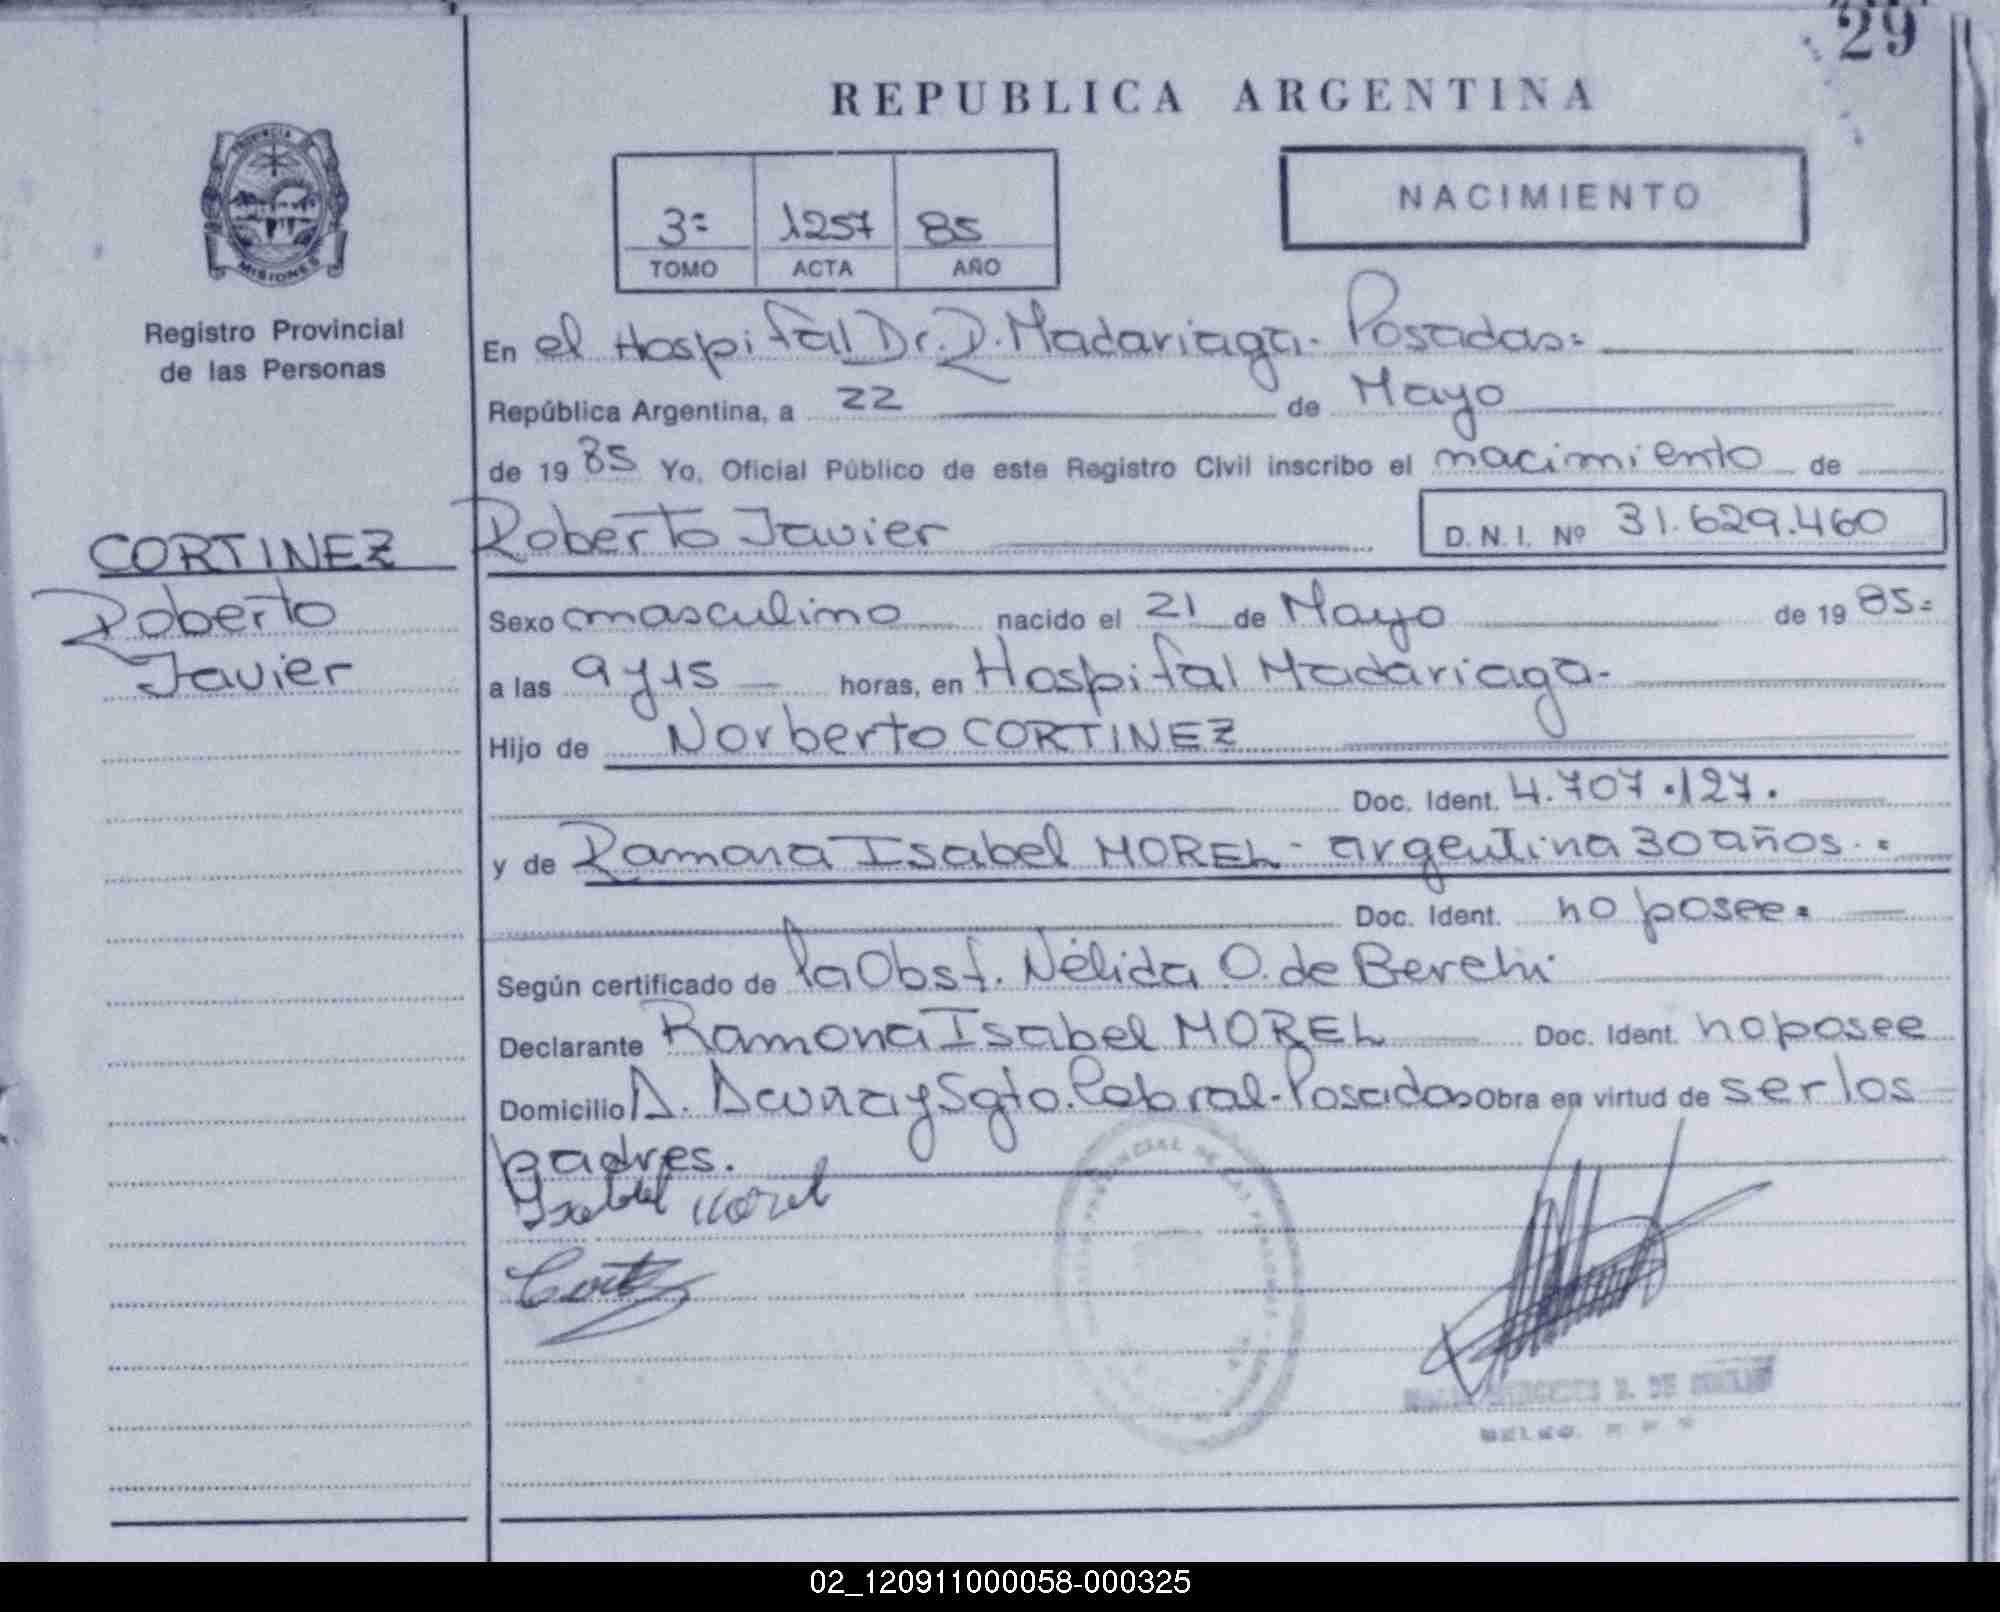 29
REPUBLICA ARGENTINA
NACIMIENTO
3ª 1257 85
TOMO ACTA AÑO
PROVINCIA
MISIONES
Registro Provincial
de las Personas
CORTINEZ
Roberto
Javier
En el Hospital Dr. R. Madariaga. Posadas=
República Argentina, a 22 de Mayo
de 1985 Yo, Oficial Público de este Registro Civil inscribo el nacimiento de
Roberto Javier D. N. I. Nº 31.629.460
Sexo masculino nacido el 21 de Mayo de 1985=
a las 9 y 15 horas, en Hospital Madariaga.
Hijo de Norberto CORTINEZ
Doc. Ident. 4.707.127.
y de Ramona Isabel MOREL - argentina 30 años.
Doc. Ident. no posee.
Según certificado de la Obst. Nélida O. de
Declarante Ramona Isabel MOREL Doc. Ident. no posee
Domicilio A. y Sgto. Cabral - Posadas Obra en virtud de ser los
padres.
Isabel Morel
02_120911000058-000325